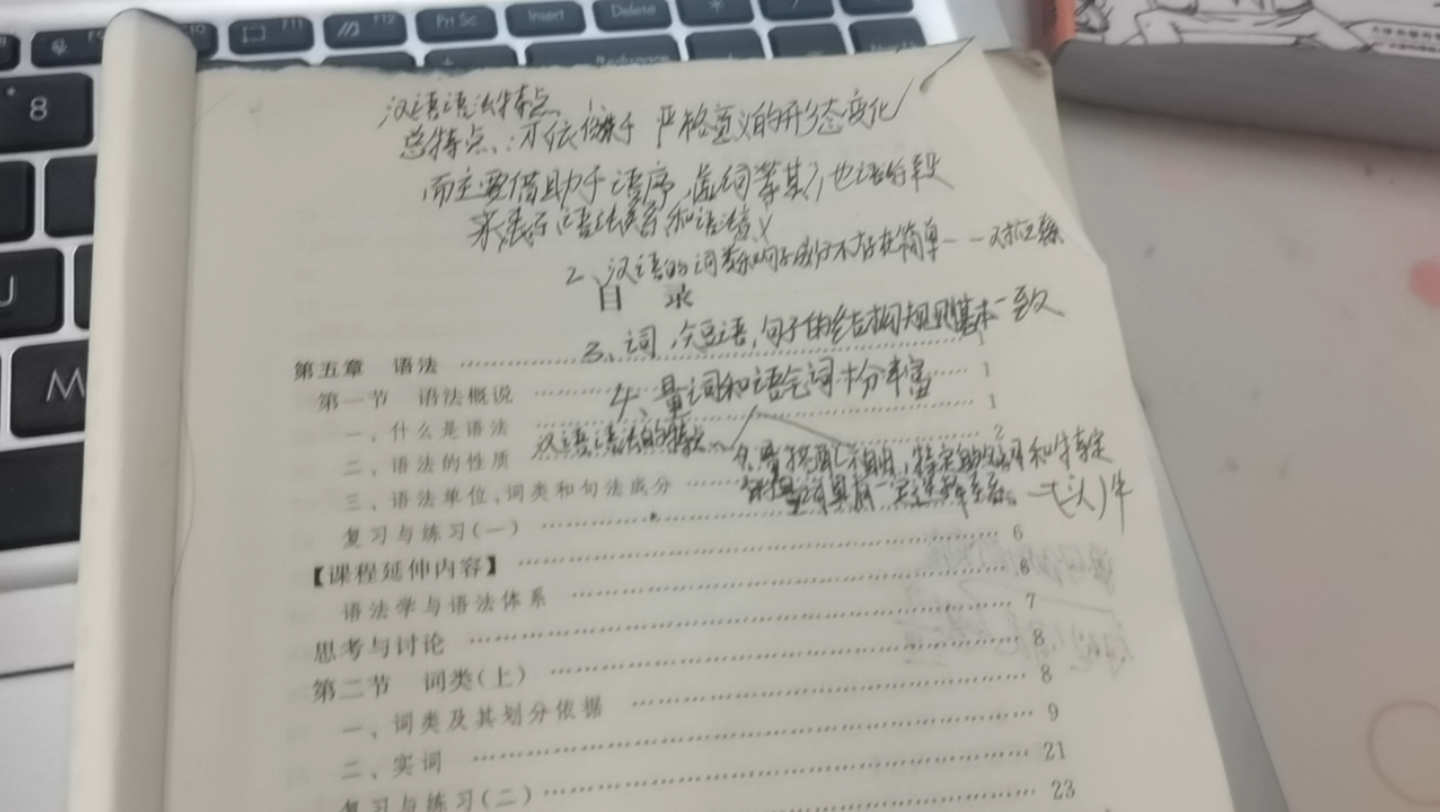 F11
F12
Prt Sc
Insert
Delete
8
U
M
汉语语法特点
总特点：不依赖于严格意义的形态变化
而主要借助于语序，虚词等其他语法手段
来表示语法关系和语法意义
2、汉语的词类和句子成分不存在简单一一对应关系
目 录
3、词，短语，句子的结构规则基本一致
第五章 语法 1
4、量词和语气词十分丰富
第一节 语法概说 1
一、什么是语法 1
汉语语法的特点
二、语法的性质 2
搭配不自由，特定的名词和特定
三、语法单位、词类和句法成分
量词具有一定选择关系。一（头）牛
复习与练习(一) 6
【课程延伸内容】 6
语法学与语法体系 7
思考与讨论 8
第二节 词类(上) 8
一、词类及其划分依据 9
二、实词 21
复习与练习(二) 23